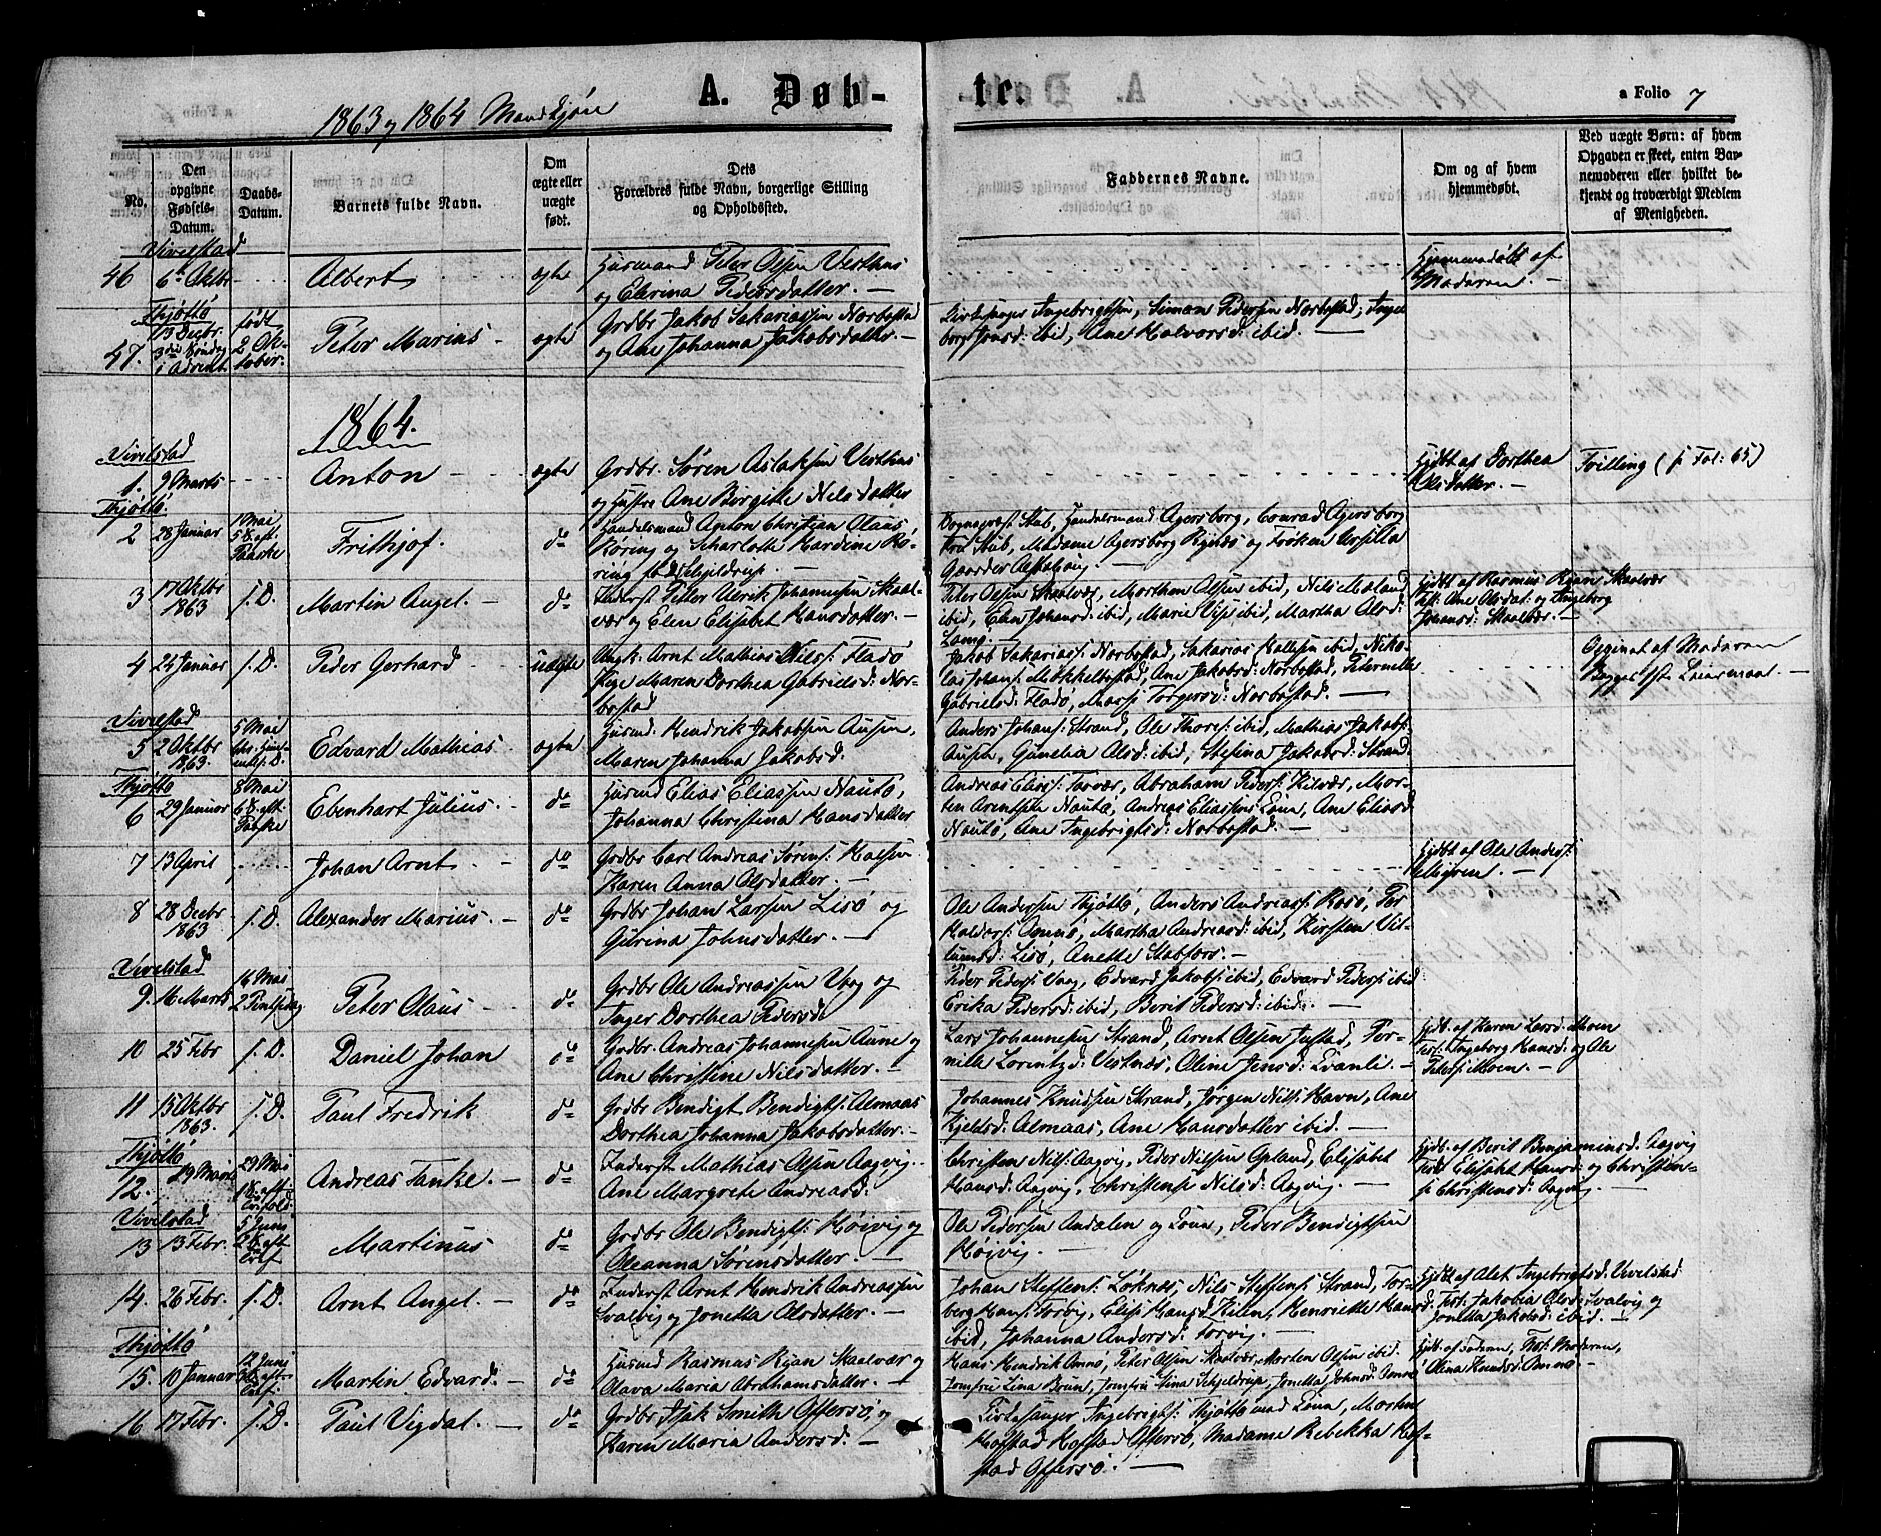 1863 & 1864 Mandkjøn
A. Døb-
te.
a Folio 7
No.
Den opgivne Fødsels-Datum.
Daabs-Datum.
Barnets fulde Navn.
Om ægte eller uægte født.
Dets
Forældres fulde Navn, borgerlige Stilling
og Opholdssted.
Faddernes Navne.
Om og af hvem
hjemmedøbt.
Ved uægte Børn: af hvem
Opgaven er skeet, enten Bar-
nemoderen eller hvilket be-
kjendt og troværdigt Medlem
af Menigheden.
Vivelstad
46 6te Oktbr Albert ægte Husmand Peter Olsen Vesthus
og Elerina Pedersdatter. —
Hjemmedøbt af
Moderen. —
Thjøttø
47. 13 Decbr 3die Søndag i Advent født 2 Oktober. Peter Marius ægte Grdbr Jakob Sakariassen Norbostad
og Ane Johanna Jakobsdatter. —
Kirkesanger Ingebrigtsen, Simon Pedersen Norbostad, Inge-
borg Jonsd: ibid, Ane Halvorsd: ibid. —
1864.
Vivelstad
1. 9 Marts Anton ægte Grdbr. Søren Aslaksen Vesthus
og Hustru Ane Birgitte Nilsdatter
Hjdbt af Dorthea
Olsdatter. —
Tvilling (s Fol: 65)
Thjøttø
2 28 Januar 1 Mai 5 S. eft. Paaske Frithjof. do Handelsmand Anton Christian Olaus
Røring og Scharlotte Hardine Rø-
ring fd Schjeldrup. —
Sognepræst Stub, Handelsmand Agersborg, Conrad Agersborg
Fru Stub, Madame Agersborg og Frøken
Gaarder
3 17 Oktbr 1863 s. D. Martin Angel. — do Inderst Peter Ulrik Johannesen Skaal-
vær og Elen Elisabet Hansdatter. —
Peter Olsen Skaalvær, Morthen Olsen ibid, Nils
ibid, Elen Johansd: ibid, Marie ibid, Martha Olsd:
Hjdbt af Rasmus Ryan Skaalvær
Test: Ane Olsdat: og Ingeborg
Johansd: Skaalvær. —
4 24 Januar s. D. Peder Gerhard uægte Ungk: Arnt Mathias Nilss: Fladø
Pige Maren Dorthea Gabrielsd: Nor-
bostad
Jakob Sakariass: Norbostad, Sakarias ibid, Niko-
lai Johans: Møkkelbostad, Ane Jakobsd: Norbostad, Pedernelle
Gabrielsd: Fladø, Torgersd: Norbostad. —
Opgivet af Moderen
Begges 1ste Leiermaal. —
Vivelstad
5 2 Oktbr 1863. 5 Mai Edvard Mathias. ægte Husmd. Hendrik Jakobsen Ausen,
Maren Johanna Jakobsd.
Anders Johans: Strand, Ole Thores: ibid, Mathias Jakobs:
Ausen, Gunelia Olsd: ibid, Stefina Jakobsd: Strand.
Thjøttø
6 29 Januar 8 Mai 6 S. eft. Paaske Ebenhart Julius do Husmd Elias Eliassen Nautø,
Johanna Christina Hansdatter
Andreas Elias: Torvær, Abraham Peders: Kilvær, Mor-
ten Arentsen Nautø, Andreas Eliassens Kone, Ane Eliasd
Nautø, Ane Ingebrigtsd: Norbostad. —
7 13 April Johan Arnt do Grdbr Carl Andreas Sørens: Halsen
Karen Anna Olsdatter. —
Hjdbt af Ole Anders:
8 28 Decbr 1863 s. D. Alexander Marius. — do Grdbr Johan Larsen Lisø og
Gurina Johnsdatter. —
Ole Andersen Thjøttø, Anders Andreass: Rosø, Per
Haldors: Omnø, Martha Andreasd: ibid, Kirsten Vil-
lumsd: Lisø, Anette Stabfors. —
Vivelstad
9. 16 Marts 16 Mai 2 Pintsedag Peter Olaus do Grdbr Ole Andreassen Vog og
Inger Dorthea Pedersd:
Peder Peders: Vog, Edvard Jakobs: ibid, Edvard Peders: ibid
Erika Pedersd: ibid, Berit Pedersd: ibid. —
10 25 Febr s. D. Daniel Johan do Grdbr. Andreas Johannesen Aune og
Ane Christine Nilsdatter. —
Lars Johannesen Strand, Arnt Olsen Justad, Per-
nille Lorentzd: Vestnes, Oline Jensd: Kvanli. —
Hjdb. af Karen Larsd: Moen
Test: Ingeborg Hansd: og Ole
Peders: Moen. —
11 15 Oktbr 1863. s. D. Paul Fredrik do Grdbr Bendigt Bendigts: Almaas
Dorthea Johanna Jakobsdatter. —
Johannes Knudsen Strand, Jørgen Nils: Havn, Ane
Kjeldsd: Almaas, Ane Hansdatter ibid. —
Thjøttø
12. 29 Marts 29 Mai 1 S. eft. Trefold. Andreas Tanke. — do Inderst Mathias Olsen Aagvig.
Ane Margrete Andreasd:
Christen Nils: Aagvig, Peder Nilsen Opland, Elisabet
Hansd: Aagvig, Nilsd: Aagvig. —
Hjdb. af Berit Benjaminsd: Aagvig
Test: Elisabet Hansd: og Christen-
Christensd: Aagvig. —
Vivelstad
13 13 Febr. 5 Juni 2 S. eft Tref Martinus do Grdbr Ole Bendigts: Høivig og
Oleanna Sørensdatter. —
Ole Pedersen Andalen og Kone, Peder Bendigtsen
Høivig. —
14. 26 Febr. s. D. Arnt Angel. — do Inderst Arnt Hendrik Andreassen
Svalvig og Jonetta Olsdatter. —
Johan Steffens: Løknes, Nils Steffens: Strand, Tor-
berg Hans: Torvig, Elise Hansd: Henriette Hansd:
ibid, Johanna Andersd: Torvig. —
Hjdbt af Alet Ingebrigtsd: Vivelstad
Test: Jakobia Olsd: Svalvig og
Jonetta Jakobsd: ibid. —
Thjøttø
15. 10 Januar 12 Juni 3 S. eftr Tref. Martin Edvard. — do Husmd Rasmus Ryan Skaalvær og
Olava Maria Abrahamsdatter. —
Hans Hendrik Omnø, Peter Olsen Skaalvær, Morten Olsen ibid.
Jomfru Lina Brun, Jomfru Stina Schjeldrup, Jonetta Johnsd: Omnø
Hjdb. af Faderen, Test: Moderen,
Olina Knudsd: Omnø. —
16 17 Febr. s. D. Paul Vigdal. — do Grdbr Isak Smith Offersø, og
Karen Maria Andersd: —
Kirkesanger Ingebrigts: Thjøttø med Kone, Morten
Hofstad Hofstad Offersø, Madame Rebekka Hof-
stad Offersø. —